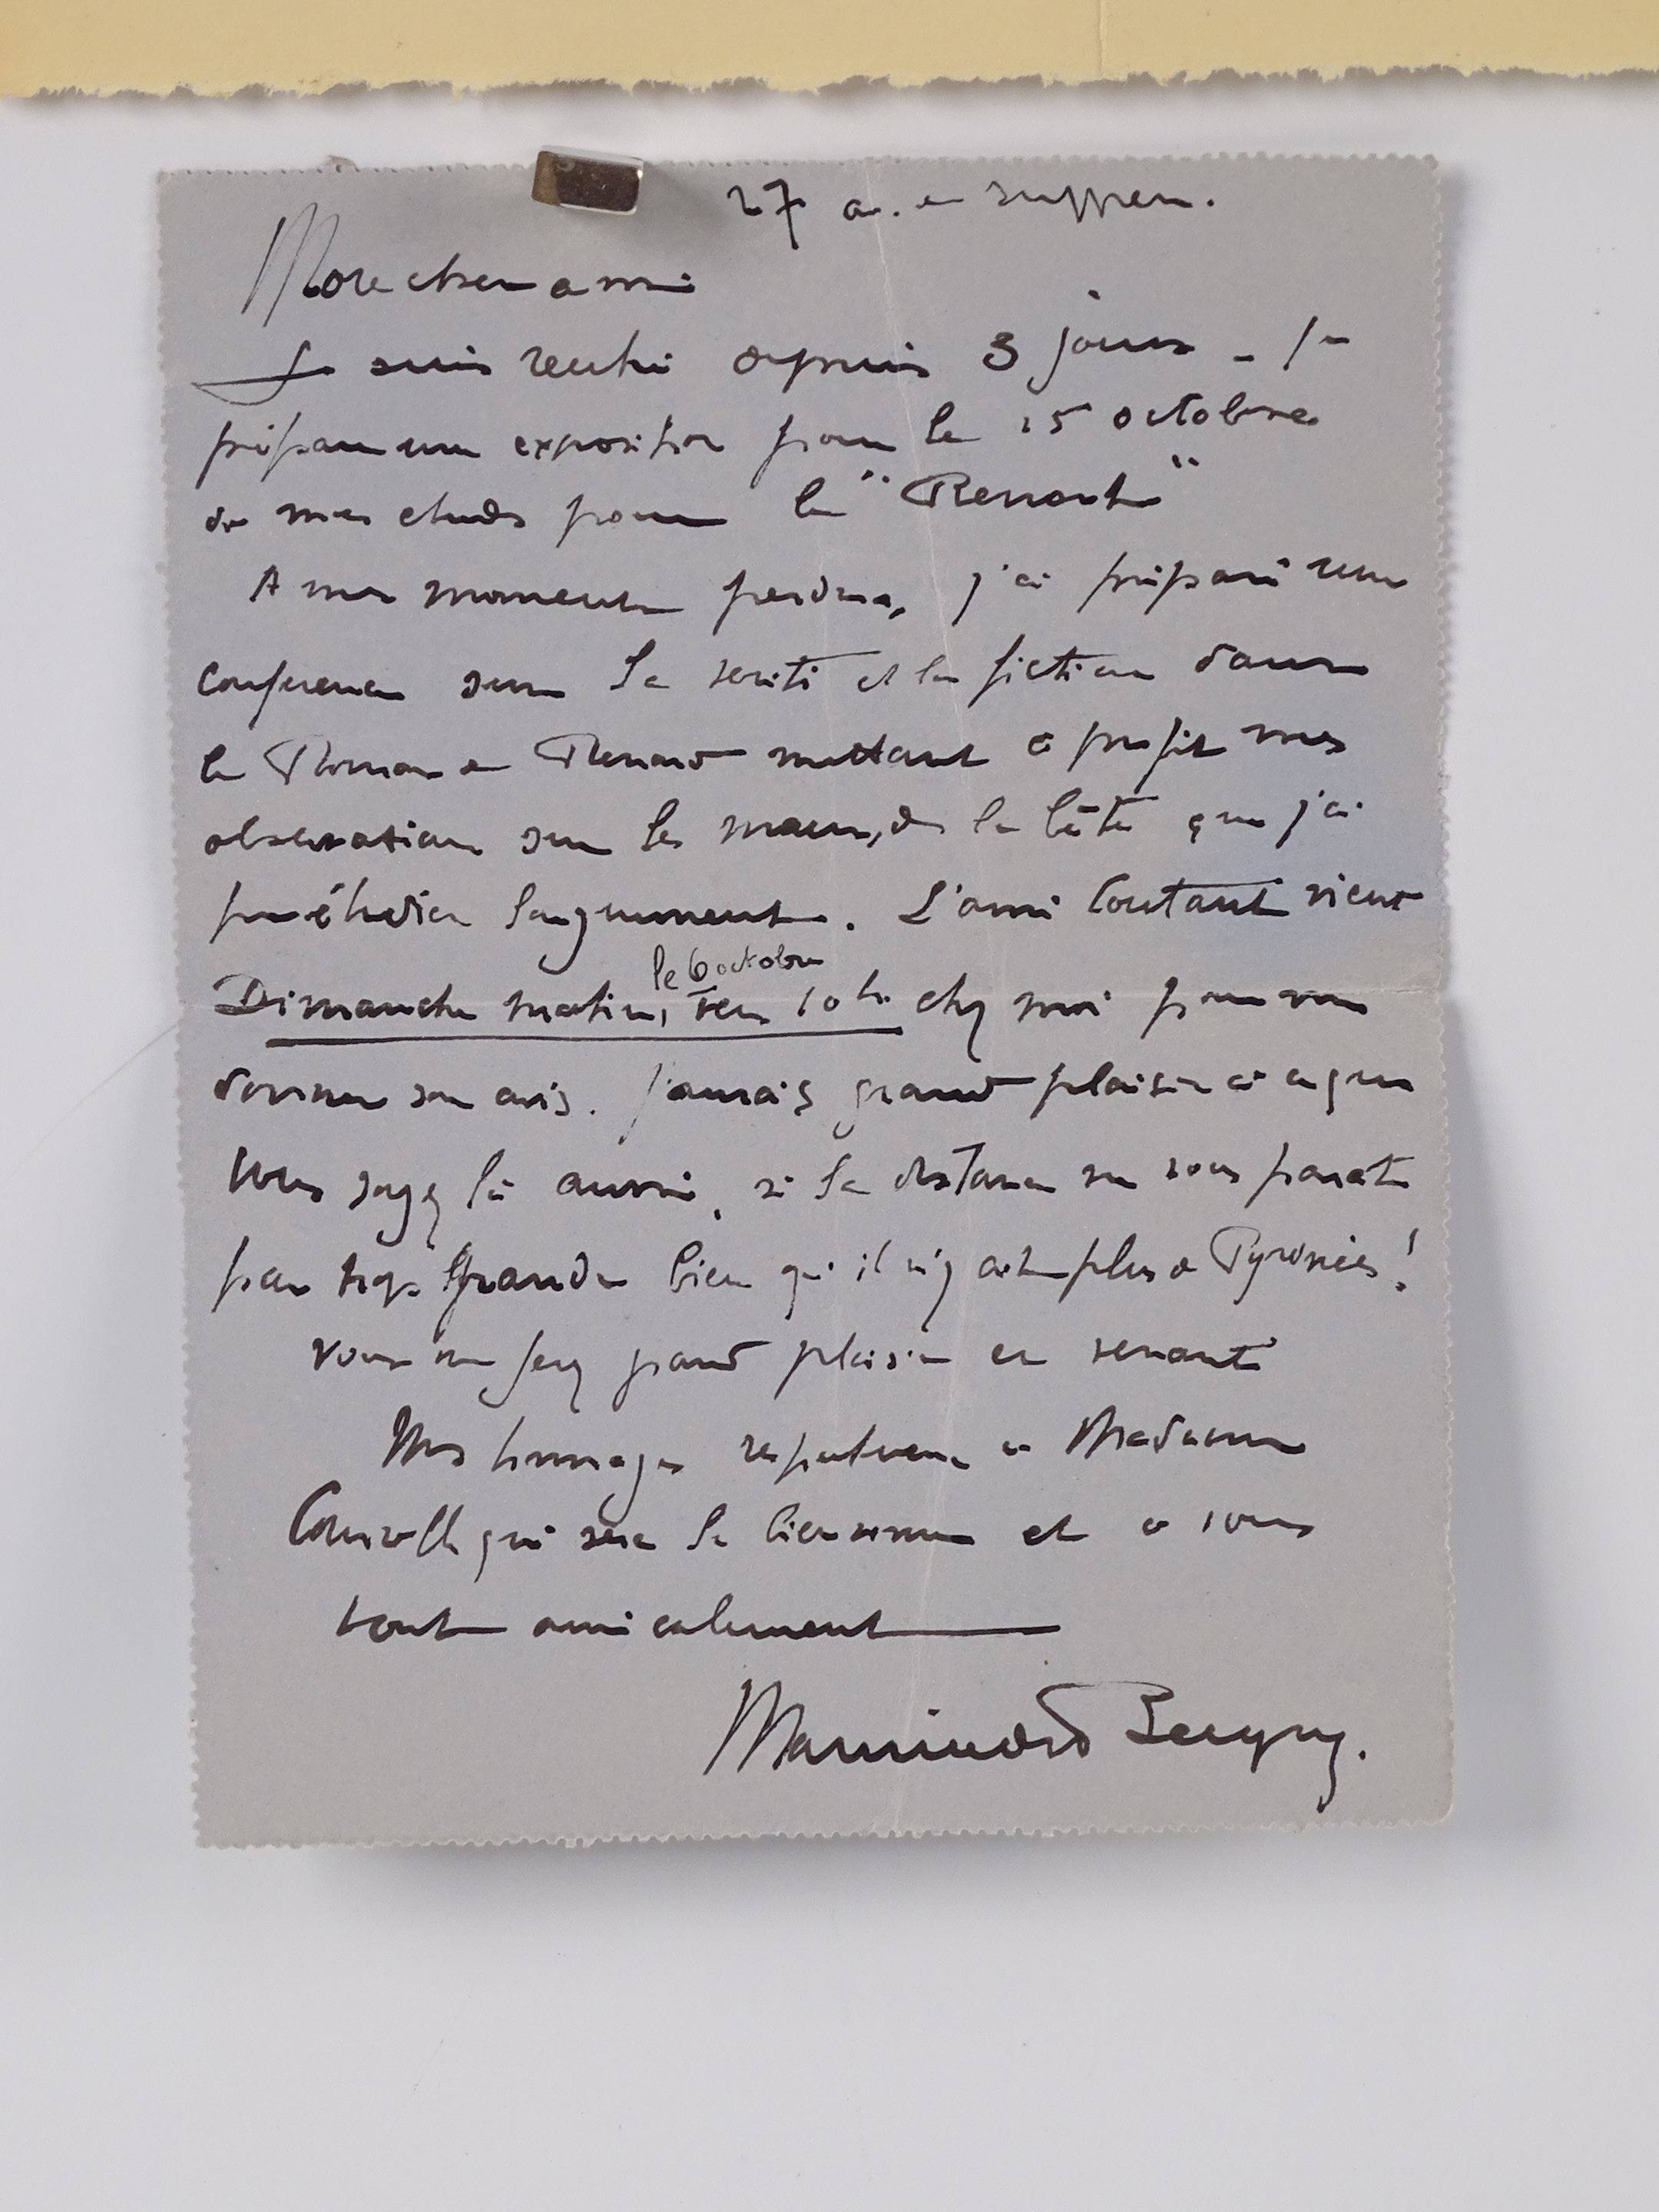 27 av. de Suffren.
Mon cher ami
Je suis rentré depuis 3 jours - Je
prépare une exposition pour le 15 octobre
de mes études pour le "Renard"
A mes moments perdus, j'ai préparé une
conférence sur la vérité et la fiction dans
le Roman de Renard mettant à profit mes
observations sur les mœurs de la bête que j'ai
pu étudier longuement. L'ami Coutant vient
le 6 octobre
Dimanche matin, vers 10h chez moi pour me
donner son avis. J'aurais grand plaisir à ce que
vous soyez là aussi, si la distance ne vous paraît
pas trop grande bien qu'il n'y ait plus de Pyrénées!
Vous me ferez grand plaisir en venant
Mes hommages respectueux à Madame
qui sera la bienvenue et à vous
tout amicalement